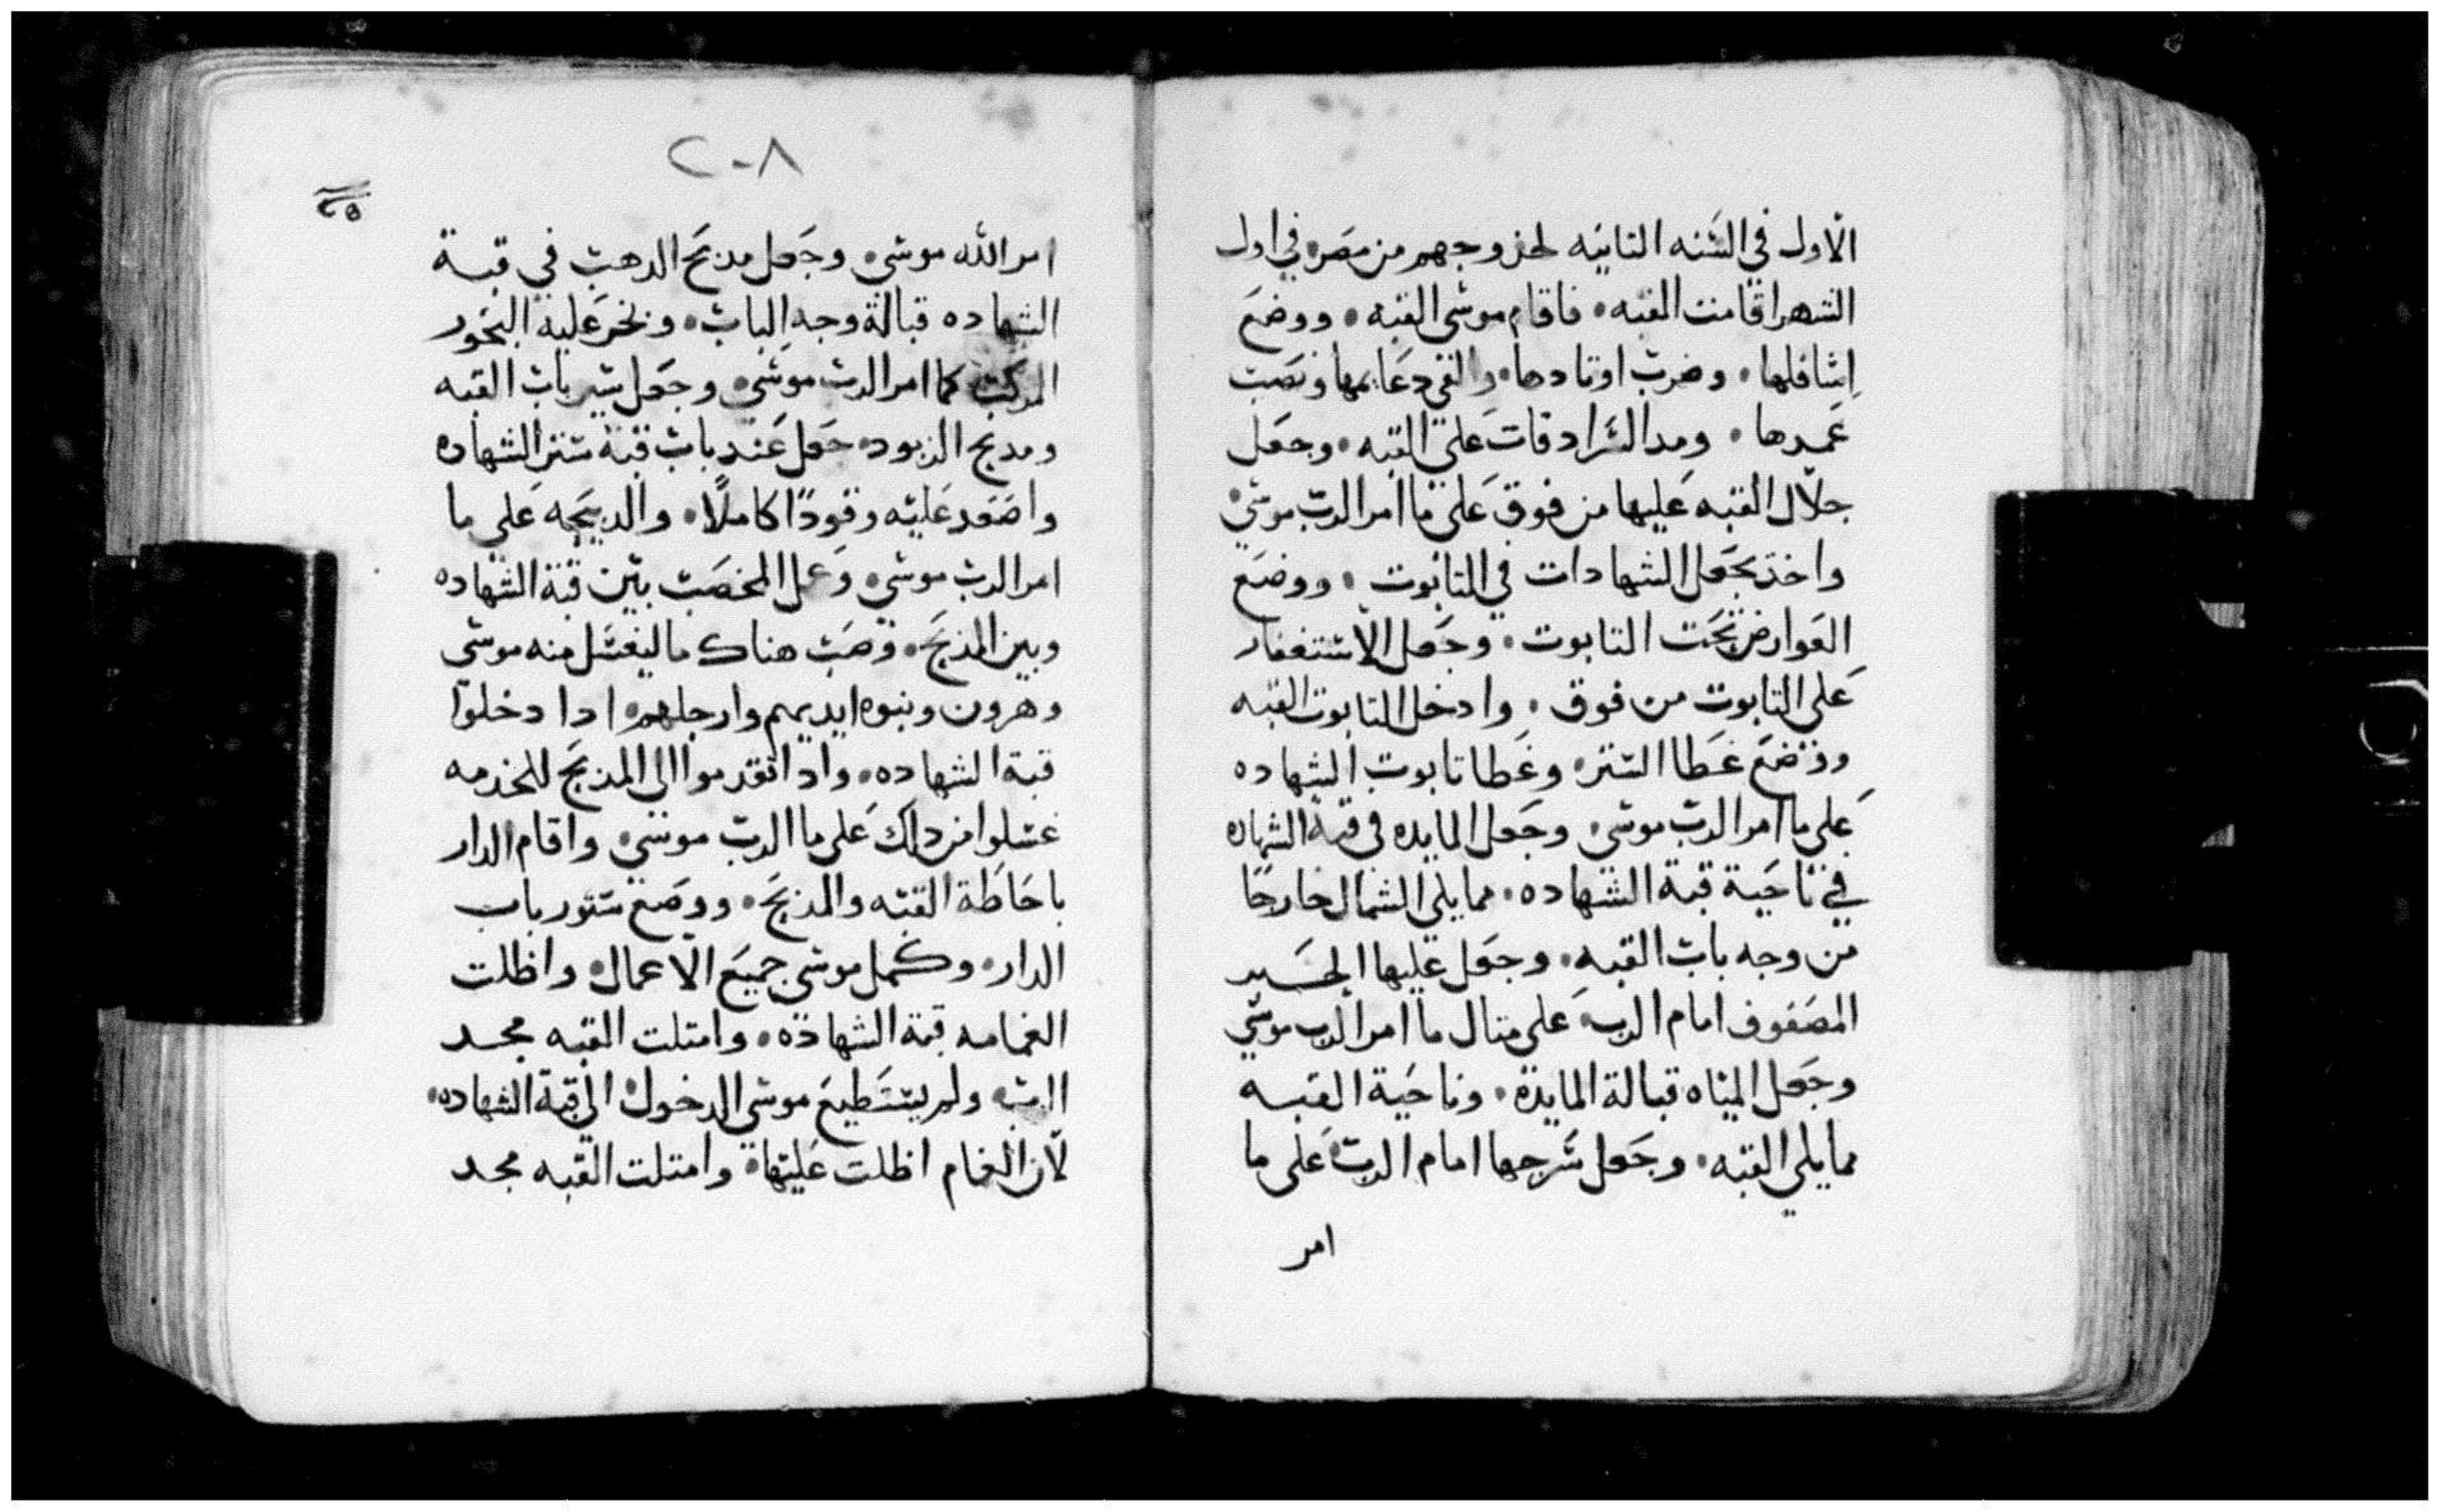 الاول في السنه التانيه لخروجهم من مصر في اول
الشهر اقامت القبه فاقام موسى القبه ووضع
اسافلها وضرب اوتادها والقى دعايمها ونصب
عمدها ومد السرادقات على القبه وجعل
جلال القبه عليها من فوق على ما امر الرب موسى
واخذ بجعل الشهادات في التابوت ووضع
العوارض تحت التابوت وجعل الاستغفار
على التابوت من فوق وادخل التابوت القبه
ووضع غطا الستر وغطا تابوت الشهاده
على ما امر الرب موسى وجعل المايده في قبة الشهاده
في ناحية قبة الشهاده مما يلي الشمال خارجا
من وجه باب القبه وجعل عليها الخبز
المصفوف امام الرب على متال ما امر الرب موسى
وجعل المناه قبالة المايدة وناحية القبه
مما يلي القبه وجعل سرجها امام الرب على ما
امر
٢٠٨
امر الله موسى وجعل مدبح الدهب في قبة
الشهاده قبالة وجه الباب وبخر عليه البخور
المركب كما امر الرب موسى وجعل ستر باب القبه
ومدبح الوقود جعل عند باب قبة ستر الشهاده
واصعد عليه وقودا كاملا والدبيحه على ما
امر الرب موسى وعمل المخضب بين قبة الشهاده
وبين المذبح وصب هناك ما ليغسل منه موسى
وهرون وبنوه ايديهم وارجلهم ادا دخلوا
قبة الشهاده وادا تقدموا الى المذبح للخدمه
غسلوا من دلك على ما الرب موسى واقام الدار
باحاطة القبه والمذبح ووضع ستور باب
الدار وكمل موسى جميع الاعمال واظلت
الغمامه قبة الشهادة وامتلت القبه مجد
الرب ولم يستطيع موسى الدخول الى قبة الشهاده
لان الغمام اظلت عليها وامتلت القبه مجد